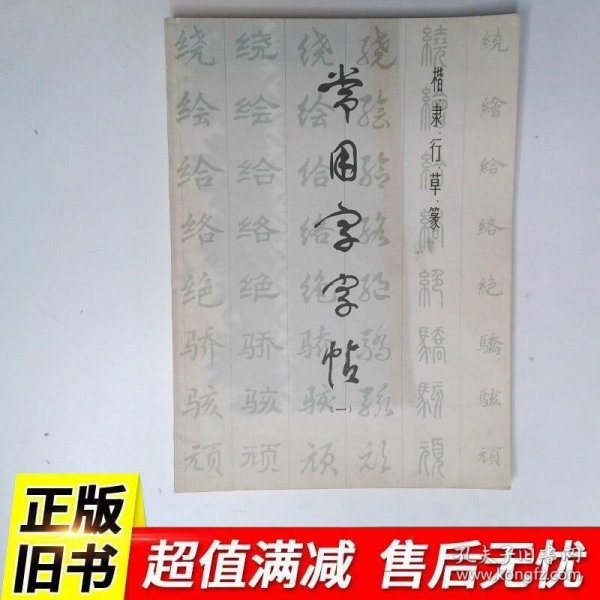 楷·隶·行·草·篆
常用字字帖
(一)
绕 绕 绕 绕 繞 繞
绘 绘 绘 绘 繪 繪
给 给 给 给 給 給
络 络 络 络 絡 絡
绝 绝 绝 绝 絕 絕
骄 骄 骄 驕 驕 驕
骇 骇 骇 骇 駭 駭
顽 顽 顽 顽 頑 頑
正版
旧书
超值满减 售后无忧
孔夫子旧书网
www.kongfz.com